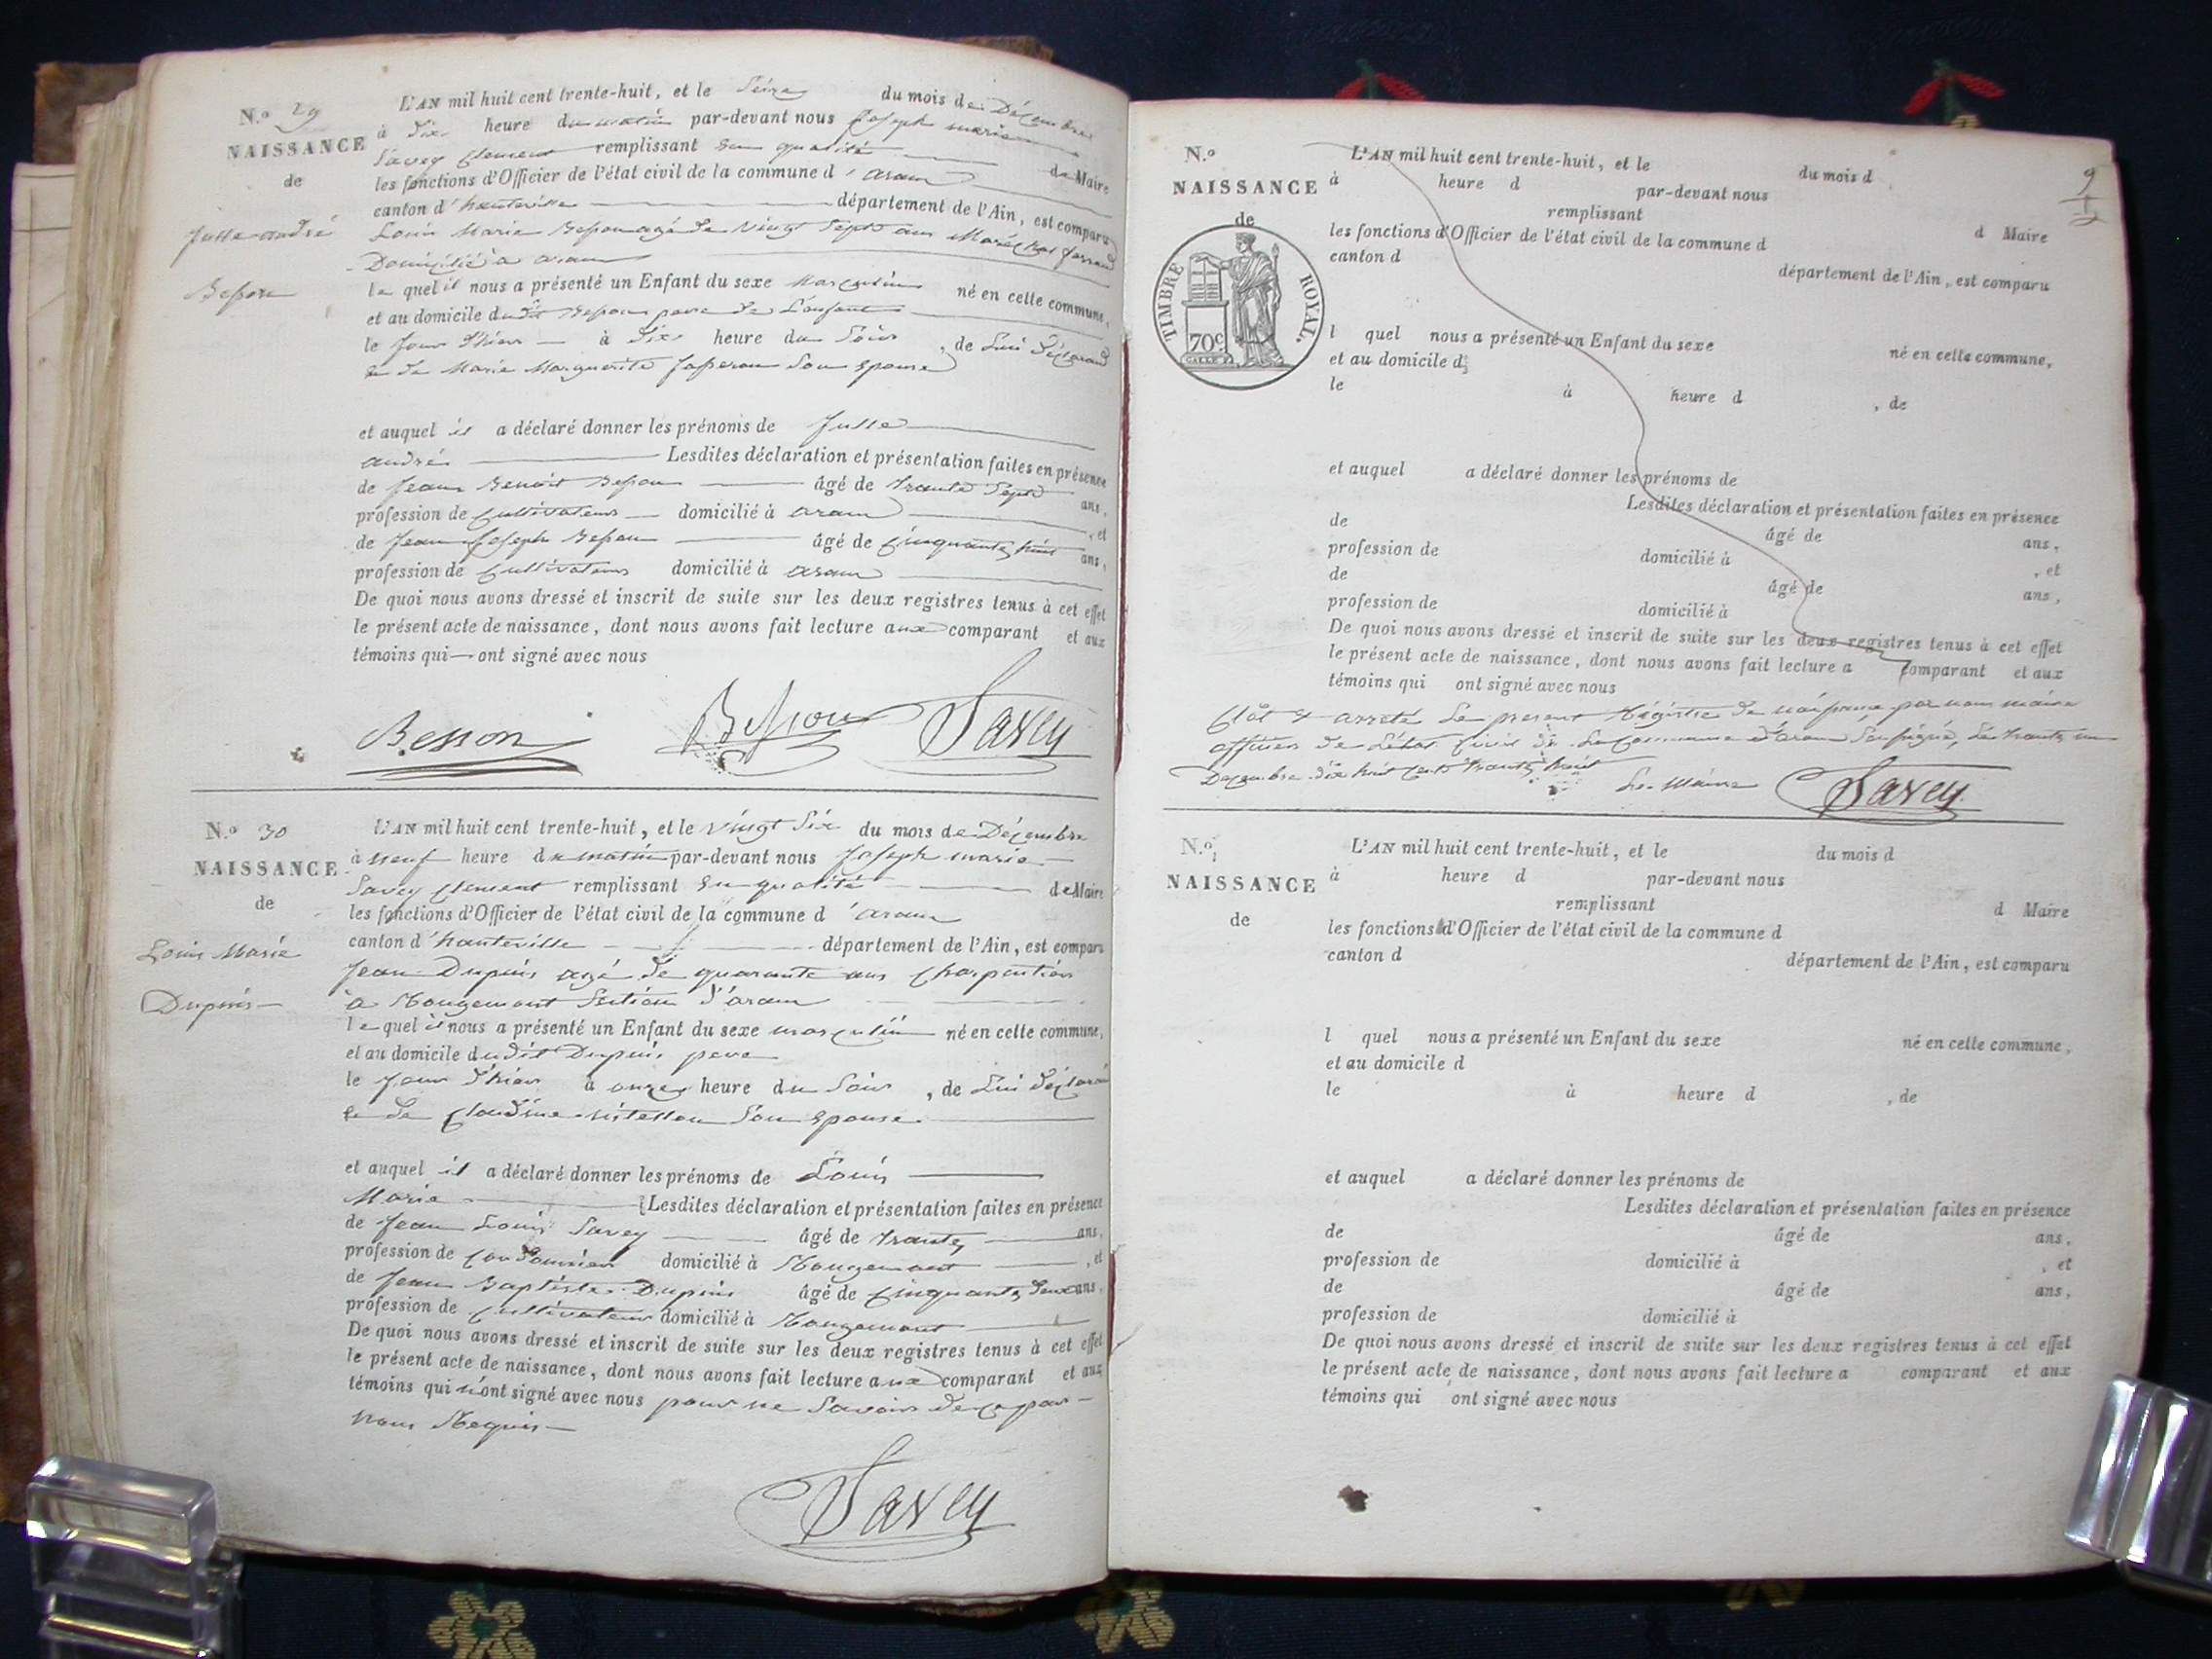 N.º 29
NAISSANCE
de
Julle andré
Besson
L'AN mil huit cent trente-huit, et le Seize du mois de Décembre
à dix heure du matin par-devant nous Joseph marie
Savey Clement remplissant en qualité de Maire
les fonctions d'Officier de l'état civil de la commune d'aranc
canton d'hauteville département de l'Ain, est comparu
Louis Marie Besson agé de vingt Sept ans Maréchal ferrand
Domicilié à aranc
le quel il nous a présenté un Enfant du sexe masculin né en cette commune,
et au domicile dudit Besson pere de L'enfant
le jour d'hier à dix heure du Soir, de Lui Déclarand
& de Marie Marguerite Son Epouse
et auquel il a déclaré donner les prénoms de Julle
andré Lesdites déclaration et présentation faites en présence
de Jean Benoit Besson âgé de trante Sept ans,
profession de Cultivateur domicilié à aranc, et
de Jean Joseph Besson âgé de Cinquante huit ans,
profession de Cultivateur domicilié à aranc
De quoi nous avons dressé et inscrit de suite sur les deux registres tenus à cet effet
le présent acte de naissance, dont nous avons fait lecture aux comparant et aux
témoins qui ont signé avec nous
Besson Besson Savey
N.º 30
NAISSANCE
de
Louis Marie
Dupuis
L'AN mil huit cent trente-huit, et le vingt Six du mois de Décembre
à neuf heure du matin par-devant nous Joseph marie
Savey Clement remplissant en qualité de Maire
les fonctions d'Officier de l'état civil de la commune d'aranc
canton d'hauteville département de l'Ain, est comparu
Jean Dupuis agé de quarante ans Charpentier
à Rougemont Section d'aranc
le quel il nous a présenté un Enfant du sexe masculin né en cette commune,
et au domicile dudit Dupuis pere
le jour d'hier à onze heure du Soir, de Lui Déclarand
& de Claudine Son Epouse
et auquel il a déclaré donner les prénoms de Louis
Marie Lesdites déclaration et présentation faites en présence
de Jean Louis Savey âgé de trante ans,
profession de Cordonnier domicilié à Rougemont, et
de Jean Baptiste Dupuis âgé de Cinquante deux ans,
profession de Cultivateur domicilié à Rougemont
De quoi nous avons dressé et inscrit de suite sur les deux registres tenus à cet effet
le présent acte de naissance, dont nous avons fait lecture aux comparant et aux
témoins qui n'ont signé avec nous pour ne Savoir de ce par
nous Requis
Savey
9
N.º
NAISSANCE
de
TIMBRE ROYAL.
70c.
L'AN mil huit cent trente-huit, et le du mois d
à heure d par-devant nous
remplissant d Maire
les fonctions d'Officier de l'état civil de la commune d
canton d département de l'Ain, est comparu
l quel nous a présenté un Enfant du sexe né en cette commune,
et au domicile d
le à heure d , de
et auquel a déclaré donner les prénoms de
Lesdites déclaration et présentation faites en présence
de âgé de ans,
profession de domicilié à , et
de âgé de ans,
profession de domicilié à
De quoi nous avons dressé et inscrit de suite sur les deux registres tenus à cet effet
le présent acte de naissance, dont nous avons fait lecture a comparant et aux
témoins qui ont signé avec nous
Clôt & arreté Le present Régistre de naissance par nous maire
officier de L'état Civil de La Commune d'aranc Soussigné, Le trante un
Decembre dix huit Cent trante huit Le Maire Savey
N.º
NAISSANCE
de
L'AN mil huit cent trente-huit, et le du mois d
à heure d par-devant nous
remplissant d Maire
les fonctions d'Officier de l'état civil de la commune d
canton d département de l'Ain, est comparu
l quel nous a présenté un Enfant du sexe né en cette commune,
et au domicile d
le à heure d , de
et auquel a déclaré donner les prénoms de
Lesdites déclaration et présentation faites en présence
de âgé de ans,
profession de domicilié à , et
de âgé de ans,
profession de domicilié à
De quoi nous avons dressé et inscrit de suite sur les deux registres tenus à cet effet
le présent acte de naissance, dont nous avons fait lecture a comparant et aux
témoins qui ont signé avec nous